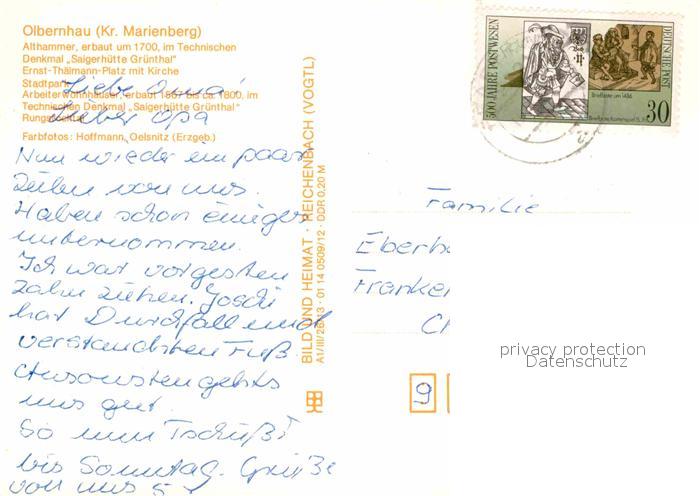 Olbernhau (Kr. Marienberg)
Althammer, erbaut um 1700, im Technischen
Denkmal „Saigerhütte Grünthal"
Ernst-Thälmann-Platz mit Kirche
Stadtpark
Arbeiterwohnhäuser, erbaut 1867 bis ca. 1800, im
Technischen Denkmal „Saigerhütte Grünthal"
Farbfotos: Hoffmann, Oelsnitz (Erzgeb.)
Liebe Oma!
Lieber Opa
Nun wieder ein paar
Zeilen von uns.
Haben schon einiges
unternommen.
Ich war vorgestern
Zahn ziehen.
hat Durchfall und
verstauchten Fuß.
Ansonsten gehts
uns gut.
So nun Tschüß!
bis Sonntag. Grüße
von uns 5
BILD UND HEIMAT · REICHENBACH (VOGTL)
A1/III/26/13 · 01 14 0509/12 · DDR 0,20 M
500 JAHRE POSTWESEN
DEUTSCHE POST
Briefbote um 1486
30
Familie
Eberh
Franke
Ch
9
privacy protection
Datenschutz